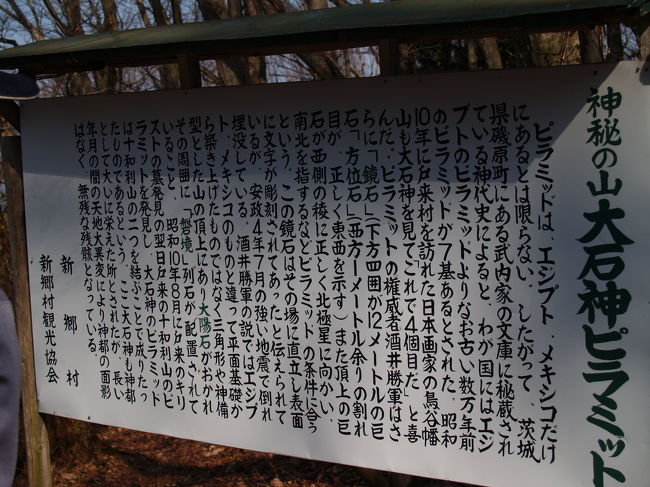 神秘の山大石神ピラミット
ピラミッドは、エジプト、メキシコだけ
にあるとは限らない。したがって、茨城
県磯原町にある武内家の文庫に秘蔵され
ている神代史によると、わが国にはエジ
プトのピラミッドよりなお古い数万年前
のピラミッドが7基あるとされた。昭和
10年に戸来村を訪れた日本画家の鳥谷幡
山も大石神を見て「これで4個目だ」と喜
んだ。ピラミッドの権威者酒井勝軍はさ
らに「鏡石」（下方四囲が12メートルの巨
石「方位石」（西方一メートル余りの割れ
目が、正しく東西を示す）また頂上の巨
石が西側の稜に正しく北極星に向かい、
南北を指するなどピラミッドの条件に合う
という。この鏡石はその場に直立し表面
に文字が彫刻されてあったと伝えられて
いるが、安政4年7月の強い地震で倒れ
埋没している。酒井勝軍の説ではエジプ
ト、メキシコのものと違って平面基礎か
ら築き上げたものではなく三角形や神備
型とした山の頂上にあり太陽石がおかれ
その周囲に「磐境」列石が配置されて
いること、昭和10年8月に戸来のキリ
ストの墓発見の翌日戸来の十和利山のピ
ラミットを発見し、大石神のピラミット
は十和利山の二つを結ぶことで成りたっ
たものであるという。ここ大石神も神都
として大いに栄えた所とされたが、長い
年月の間の天地大異変により神都の面影
はなく、無残な残骸となっている。
新郷村
新郷村観光協会